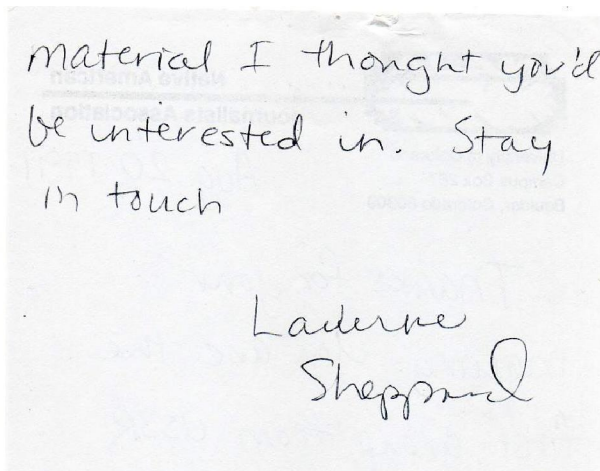 material I thought you'd
be interested in. Stay
in touch
Laverne
Sheppard